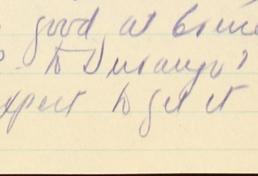 good at
to Durango
expect to get it